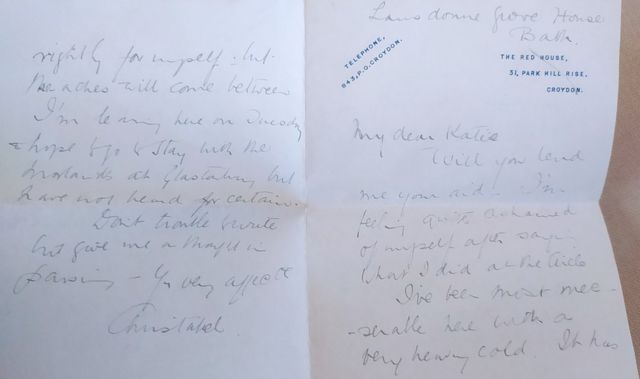 Lansdowne Grove House
Bath.
TELEPHONE,
843, P.O. CROYDON.
THE RED HOUSE,
31, PARK HILL RISE,
CROYDON.
My dear Katie
Will you lend
me your aid. I'm
feeling quite ashamed
of myself after saying
what I did at the Circle
I've been most mee-
-serable here with a
very heavy cold. It has
rightly for myself - but
the aches will come between
I'm leaving here on Tuesday
& hope to go & stay with the
at Glastonbury but
have not heard for certain.
Don't trouble to write
but give me a thought in
passing - Yr very affecte
Christabel.